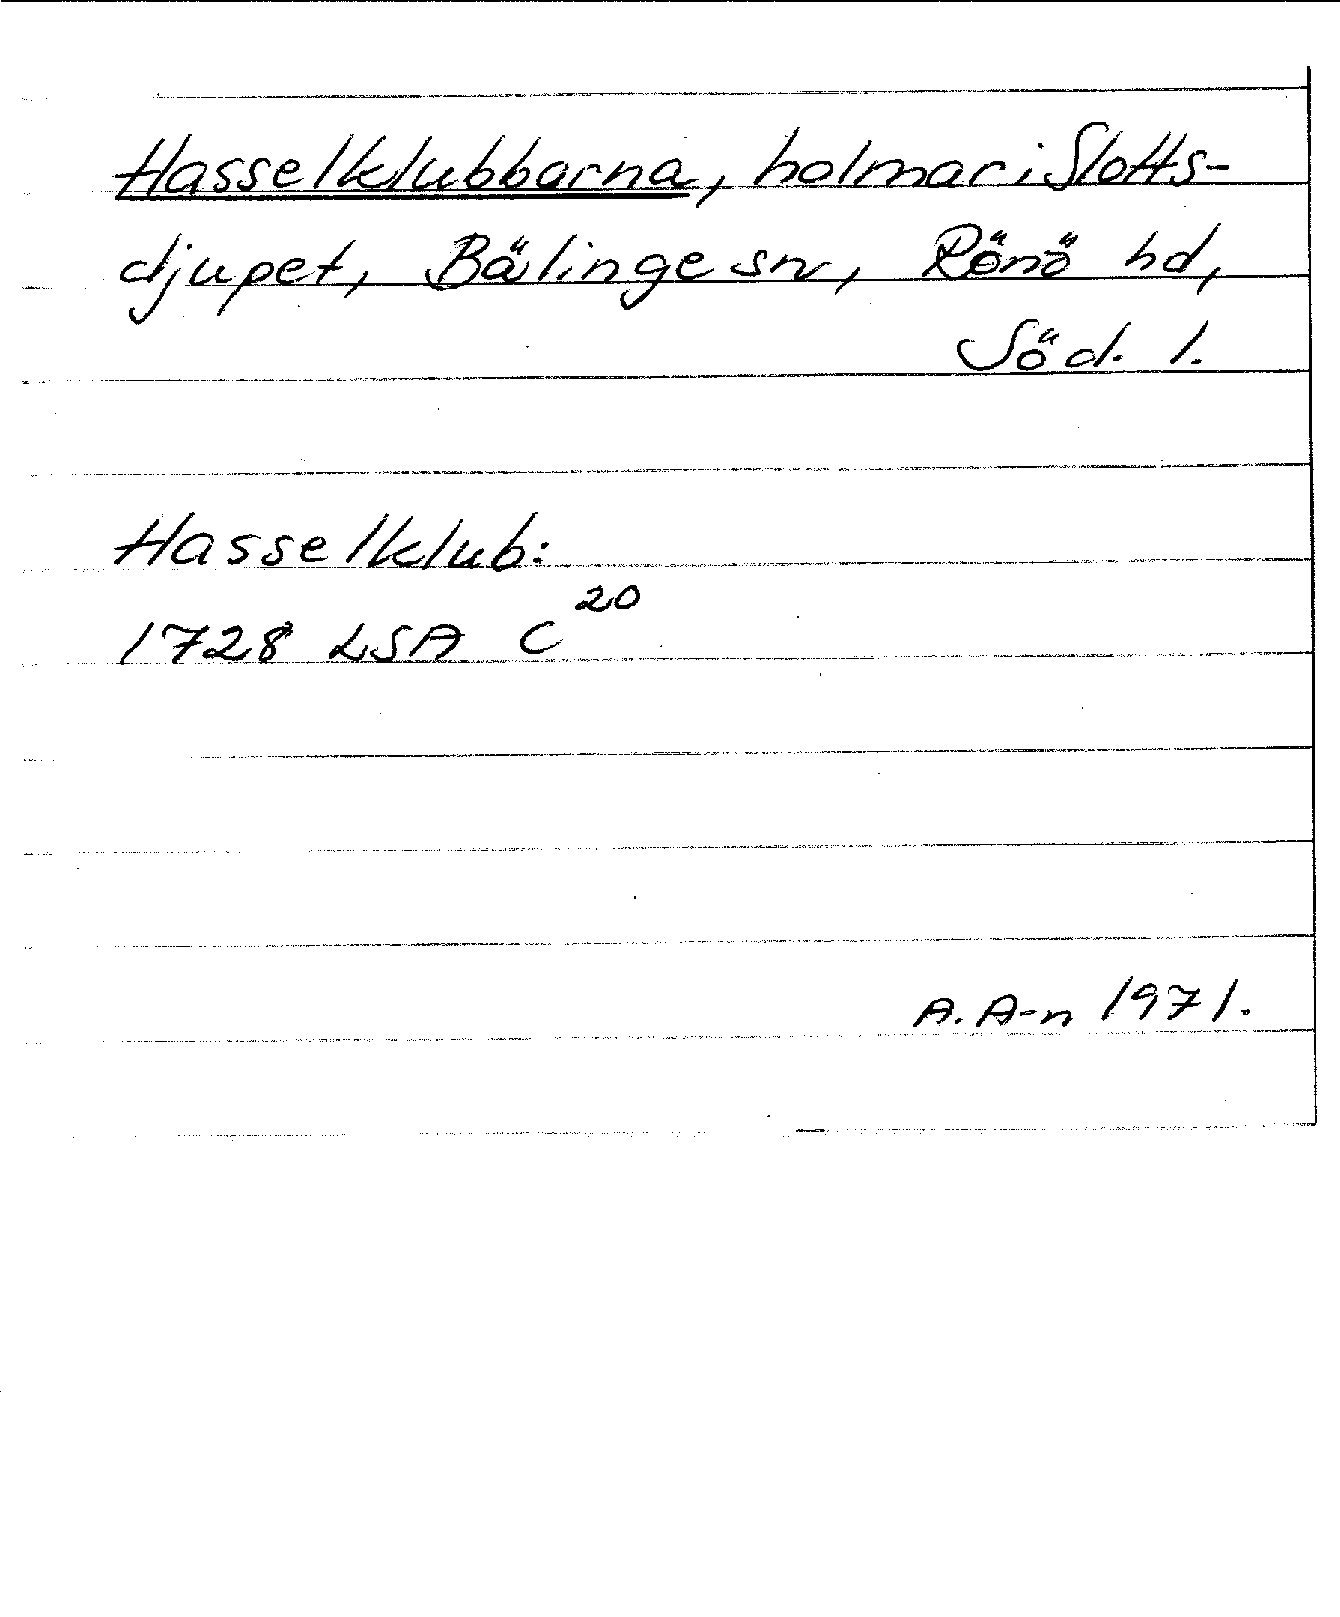 Hasselklubbarna, holmar i Slotts-
djupet, Bälinge sn, Rönö hd,
Söd. l.
Hasselklub:
1728 LSA C²⁰
A. A-n 1971.